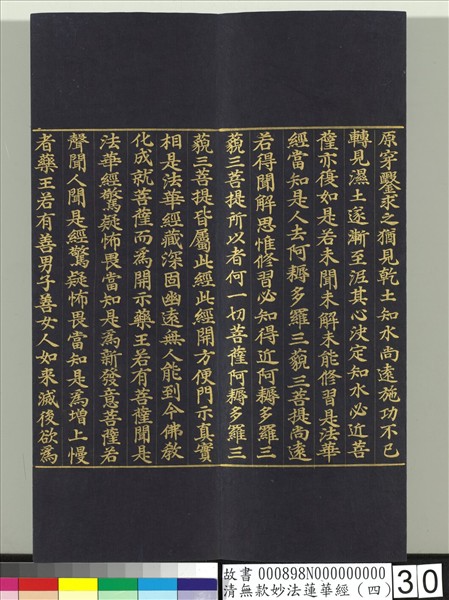 原穿鑿求之猶見乾土知水尚遠施功不已
轉見濕土遂漸至泥其心決定知水必近菩
薩亦復如是若未聞未解未能修習是法華
經當知是人去阿耨多羅三藐三菩提尚遠
若得聞解思惟修習必知得近阿耨多羅三
藐三菩提所以者何一切菩薩阿耨多羅三
藐三菩提皆屬此經此經開方便門示真實
相是法華經藏深固幽遠無人能到今佛教
化成就菩薩而為開示藥王若有菩薩聞是
法華經驚疑怖畏當知是為新發意菩薩若
聲聞人聞是經驚疑怖畏當知是為增上慢
者藥王若有善男子善女人如來滅後欲為
故書 000898N000000000
清無款妙法蓮華經(四)
30